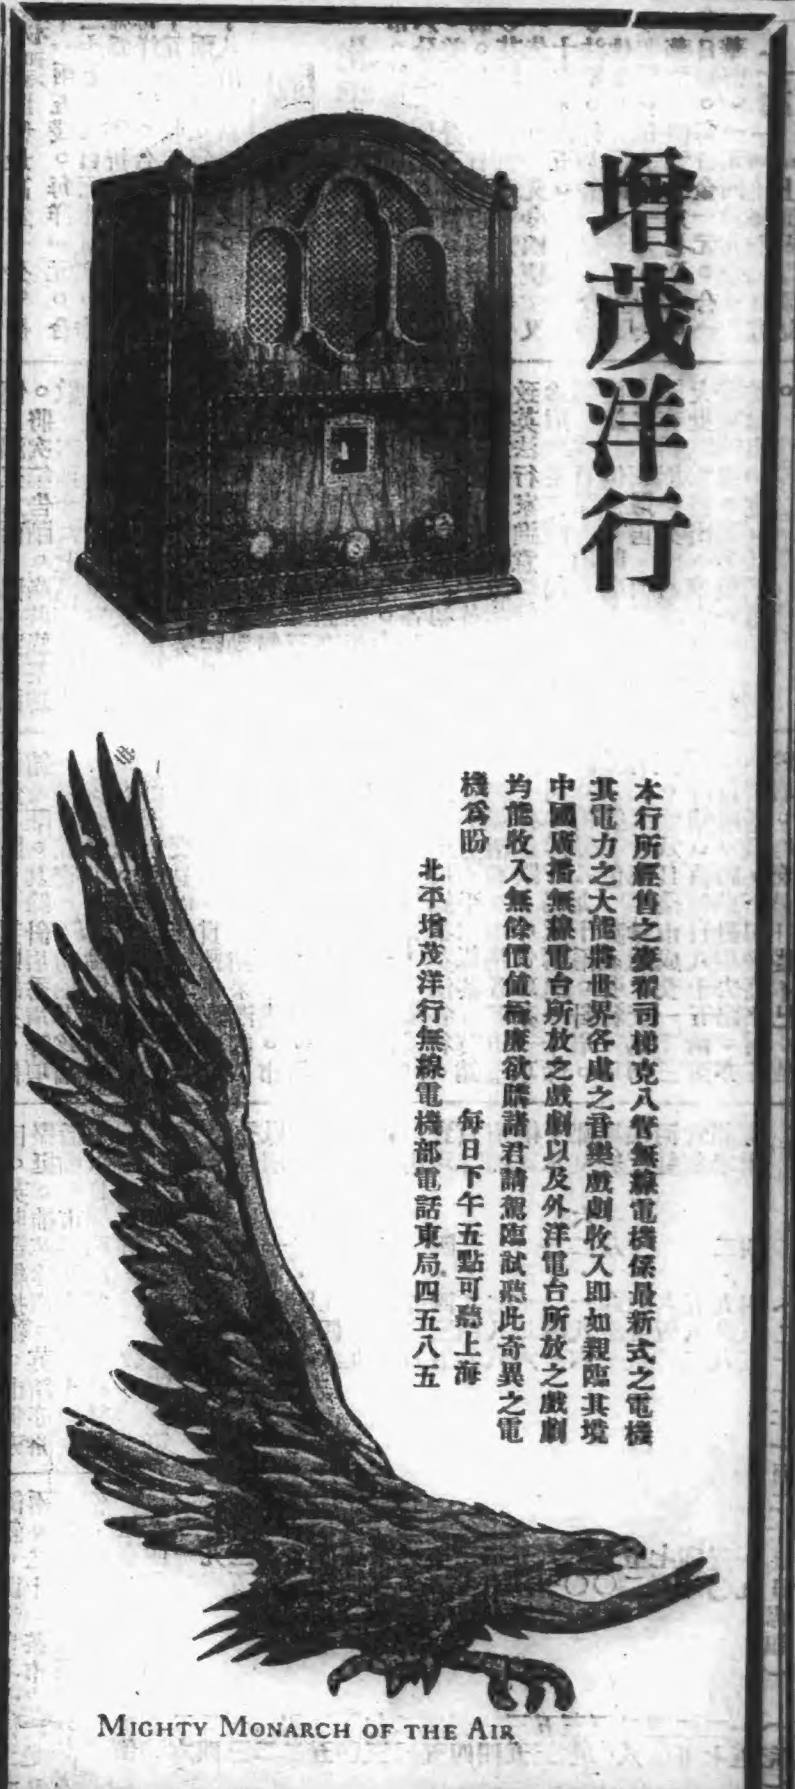 增茂洋行
本行所經售之麥祺司梯克八管無線電機係最新式之電機
其電力之大能將世界各處之音樂戲劇收入即如親臨其境
中國廣播無線電台所放之戲劇以及外洋電台所放之戲劇
均能收入無餘價值極廉欲購諸君請駕臨試聽此奇異之電
機為盼
每日下午五點可聽上海
北平增茂洋行無線電機部電話東局四五八五
MIGHTY MONARCH OF THE AIR